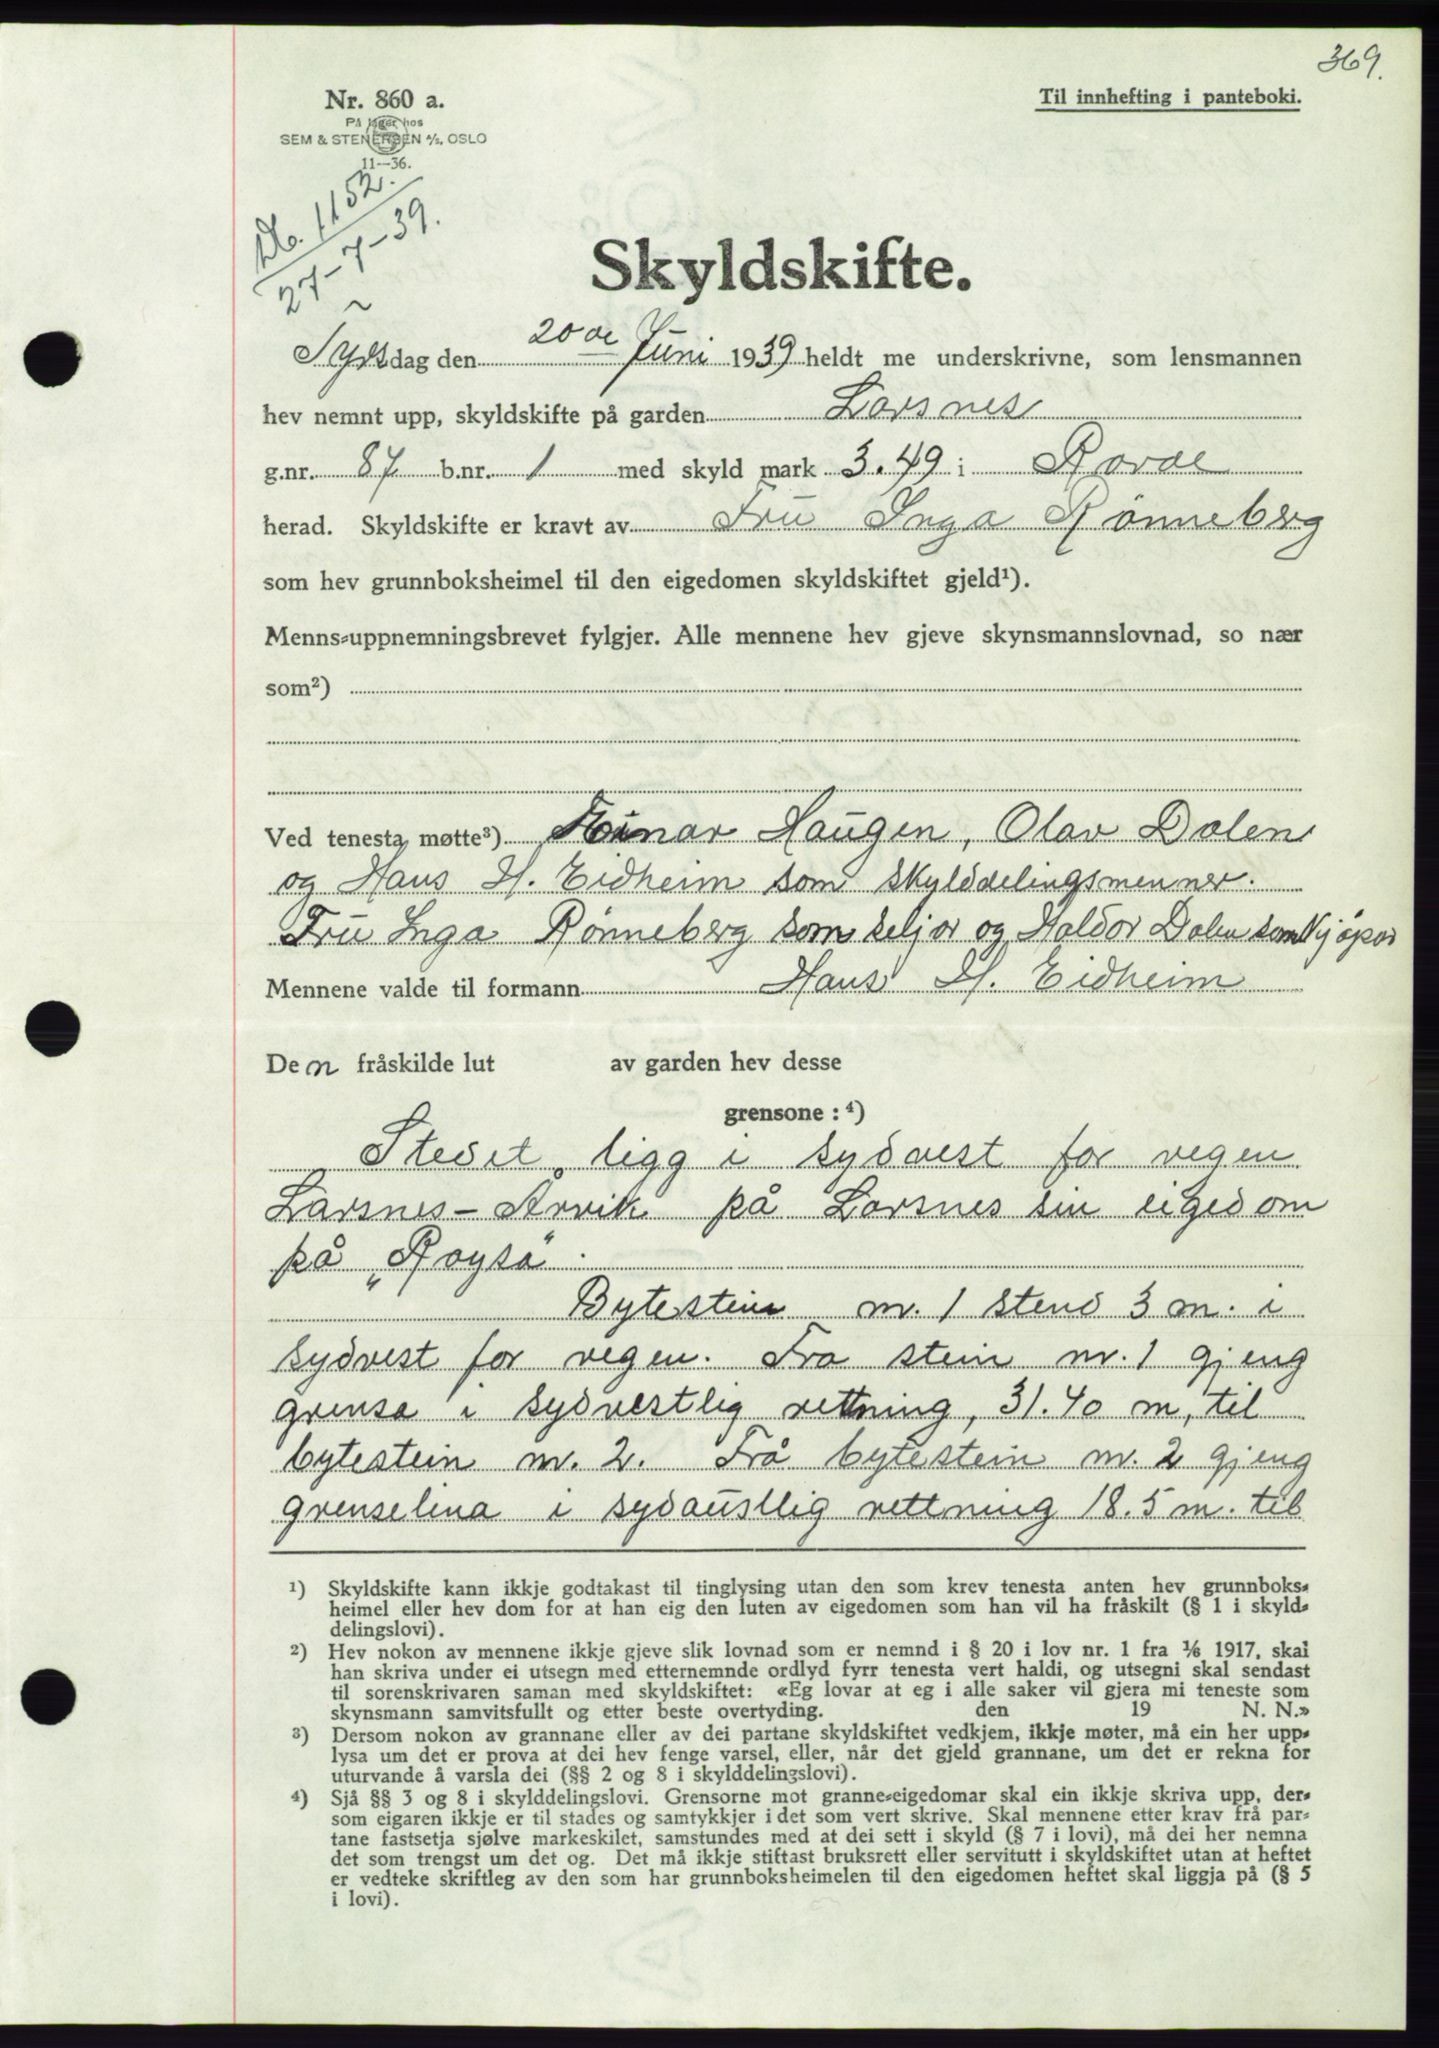 369.
Nr. 860 a.
På lager hos
SEM & STENERSEN A/S, OSLO
11—36.
Til innhefting i panteboki.
Db. 1152.
27-7-39.
Skyldskifte.
Tysdag den 20de Juni 1939 heldt me underskrivne, som lensmannen
hev nemnt upp, skyldskifte på garden Larsnes
g.nr. 87 b.nr. 1 med skyld mark 3.49 i Rovde
herad. Skyldskifte er kravt av Fru Inga Rønneberg
som hev grunnboksheimel til den eigedomen skyldskiftet gjeld¹).
Menns-uppnemningsbrevet fylgjer. Alle mennene hev gjeve skynsmannslovnad, so nær
som²)
Ved tenesta møtte³) Einar Haugen, Olav Dalen
og Hans H. Eidheim som skylddelingsmenner.
Fru Inga Rønneberg som seljar og Haldor Dalen som Kjøpar
Mennene valde til formann Hans H. Eidheim
Den fråskilde lut av garden hev desse
grensone: ⁴)
Stedet ligg i sydvest for vegen
Larsnes - Årvik på Larsnes sin eigedom
på „Røysa".
Bytestein nr. 1 stend 3 m. i
sydvest for vegen. Fra stein nr. 1 gjeng
grensa i sydvestlig rettning, 31.40 m, til
bytestein nr. 2. Frå bytestein nr. 2 gjeng
grenselina i sydaustlig rettning 18.5 m. til
¹) Skyldskifte kann ikkje godtakast til tinglysing utan den som krev tenesta anten hev grunnboks-
heimel eller hev dom for at han eig den luten av eigedomen som han vil ha fråskilt (§ 1 i skyld-
delingslovi).
²) Hev nokon av mennene ikkje gjeve slik lovnad som er nemnd i § 20 i lov nr. 1 fra 1/6 1917, skal
han skriva under ei utsegn med etternemnde ordlyd fyrr tenesta vert haldi, og utsegni skal sendast
til sorenskrivaren saman med skyldskiftet: «Eg lovar at eg i alle saker vil gjera mi teneste som
skynsmann samvitsfullt og etter beste overtyding. den 19 N. N.»
³) Dersom nokon av grannane eller av dei partane skyldskiftet vedkjem, ikkje møter, må ein her upp-
lysa um det er prova at dei hev fenge varsel, eller, når det gjeld grannane, um det er rekna for
uturvande å varsla dei (§§ 2 og 8 i skylddelingslovi).
⁴) Sjå §§ 3 og 8 i skylddelingslovi. Grensorne mot granne-eigedomar skal ein ikkje skriva upp, der-
som eigaren ikkje er til stades og samtykkjer i det som vert skrive. Skal mennene etter krav frå par-
tane fastsetja sjølve markeskilet, samstundes med at dei sett i skyld (§ 7 i lovi), må dei her nemna
det som trengst um det og. Det må ikkje stiftast bruksrett eller servitutt i skyldskiftet utan at heftet
er vedteke skriftleg av den som har grunnboksheimelen til den eigedomen heftet skal liggja på (§ 5
i lovi).